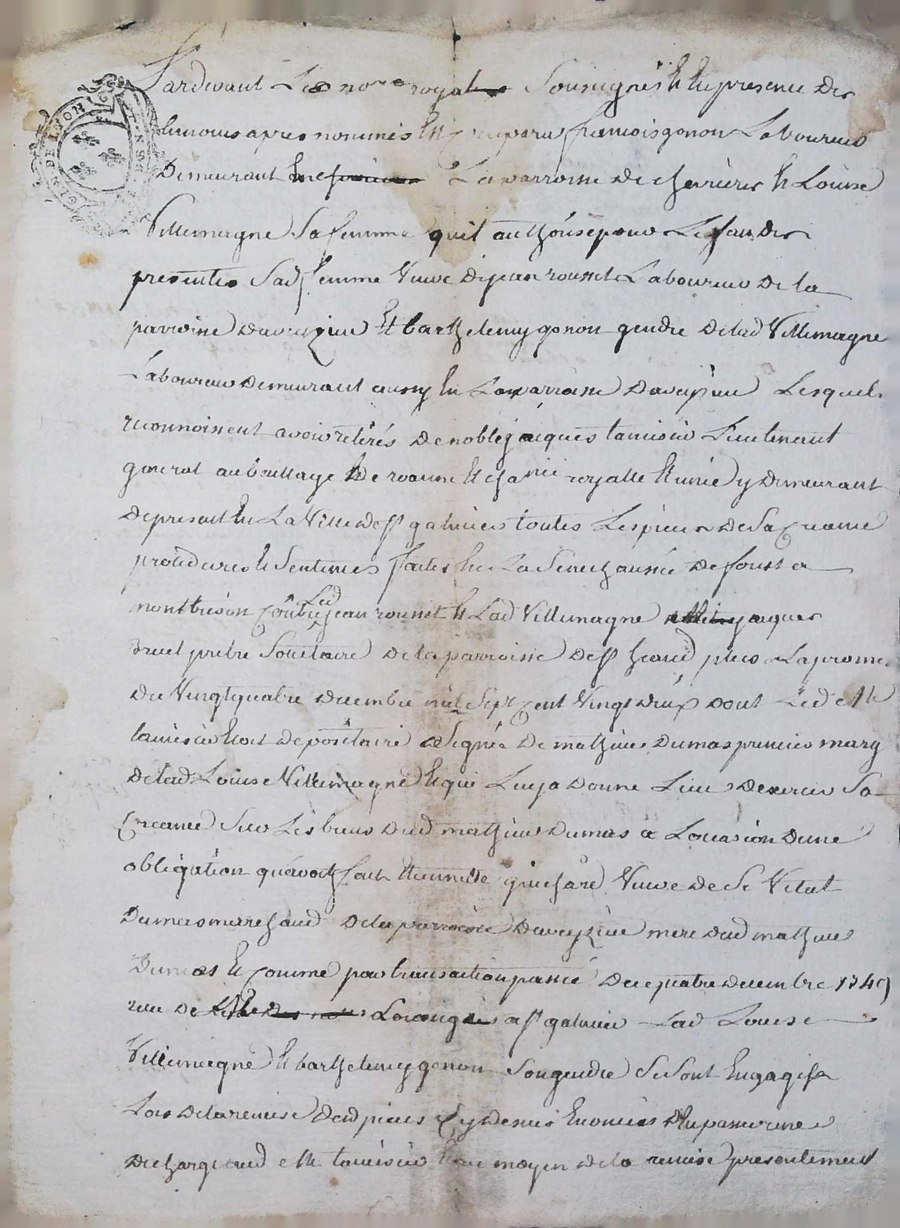 Pardevant Les no.res royal Soussignés Et En presence des
temoins apres nommés Est comparu francois gonon Laboureur
Demeurant En La parroisse de chevrieres Et Louise
Villemagne Sa femme quil authorise pour Le fait des
presentes Sad. femme Veuve de jean rousset Laboureur de La
parroisse Daveyzieu Et barthelemy gonon gendre De lad Villemagne
Laboureur demeurant aussy En La parroisse Daveizieu Lesquels
reconnoissent avoir retirés De noble jacques tamisier Lieutenant
general au baillage De roanne Et cha.nie royalle Et unie y demeurant
De present En La Ville de st galmier toutes Les pieces De Sa Creance
procedures Et Sentences faites En La Senechaussée De forest a
montbrison Contre Led jean rousset Et Lad Villemagne jacques
pretre Societaire De la parroisse De st plus La promesse
Du Vingt quatre decembre mil Sept Cent Vingt deux dont Led Me
tamisier Etoit depositaire Signée De mathieu Dumas premier mary
De lad Louise Villemagne Et qui Luy a Donné Lieu Dexercer Sa
Creance Sur Les biens Dud mathieu Dumas a Loccasion Dune
obligation quavoit fait Veuve de Sr Vital
Dumas marechand De la parroisse Daveyzieu mere Dud mathieu
Dumas Et Comme par transaction passée Le quatre decembre 1749
recue De a st galmier Lad Louise
Villemagne Et barthelemy gonon Son gendre Se Sont Engagés
Lors de la remise Desd pieces Cy dessus Enoncées Den passer une
Decharge aud Me tamisier Et au moyen de la remise presentement